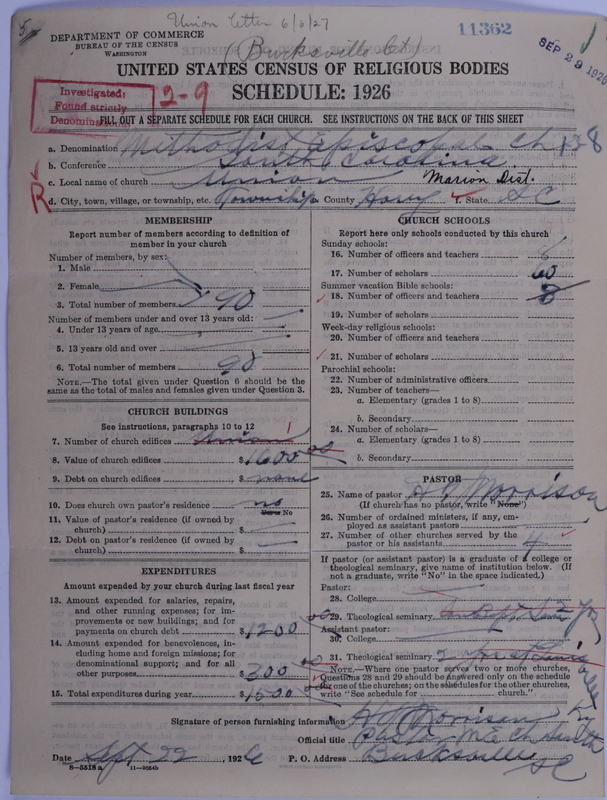 Union letter 6/6/27
11362
DEPARTMENT OF COMMERCE
BUREAU OF THE CENSUS
WASHINGTON
SEP 29 1926
UNITED STATES CENSUS OF RELIGIOUS BODIES
SCHEDULE: 1926
Investigated:
Found strictly
Denominational
2-9
FILL OUT A SEPARATE SCHEDULE FOR EACH CHURCH. SEE INSTRUCTIONS ON THE BACK OF THIS SHEET
a. Denomination Methodist Episcopal Ch 138
b. Conference South Carolina
c. Local name of church Union Marion Dist.
R
d. City, town, village, or township, etc. Township County Horry f. State S C
MEMBERSHIP
Report number of members according to definition of
member in your church
Number of members, by sex:
1. Male
2. Female
3. Total number of members 90
Number of members under and over 13 years old:
4. Under 13 years of age
5. 13 years old and over
6. Total number of members 90
NOTE.—The total given under Question 6 should be the
same as the total of males and females given under Question 3.
CHURCH BUILDINGS
See instructions, paragraphs 10 to 12
7. Number of church edifices Union 1
8. Value of church edifices $ 1600 00
9. Debt on church edifices $ none
10. Does church own pastor's residence no
Yes or No
11. Value of pastor's residence (if owned by
church) $
12. Debt on pastor's residence (if owned by
church) $
EXPENDITURES
Amount expended by your church during last fiscal year
13. Amount expended for salaries, repairs,
and other running expenses; for im-
provements or new buildings; and for
payments on church debt $ 1200 00
14. Amount expended for benevolences, in-
cluding home and foreign missions; for
denominational support; and for all
other purposes $ 300 00
15. Total expenditures during year $ 1500
CHURCH SCHOOLS
Report here only schools conducted by this church
Sunday schools:
16. Number of officers and teachers 8
17. Number of scholars 60
Summer vacation Bible schools:
18. Number of officers and teachers 8
19. Number of scholars
Week-day religious schools:
20. Number of officers and teachers
21. Number of scholars
Parochial schools:
22. Number of administrative officers
23. Number of teachers—
a. Elementary (grades 1 to 8)
b. Secondary
24. Number of scholars—
a. Elementary (grades 1 to 8)
b. Secondary
PASTOR
25. Name of pastor Morrison
(If church has no pastor, write "None")
26. Number of ordained ministers, if any, em-
ployed as assistant pastors
27. Number of other churches served by the
pastor or his assistants 4
If pastor (or assistant pastor) is a graduate of a college or
theological seminary, give name of institution below. (If
not a graduate, write "No" in the space indicated.)
Pastor:
28. College
29. Theological seminary
Assistant pastor:
30. College
31. Theological seminary
NOTE.—Where one pastor serves two or more churches,
Questions 28 and 29 should be answered only on the schedule
for one of the churches; on the schedules for the other churches,
write "See schedule for church."
Signature of person furnishing information Morrison
Official title Pastor M E Ch South
Date Sept 22, 1926 P. O. Address Bucksville S C
8—5518 a 11—9864b